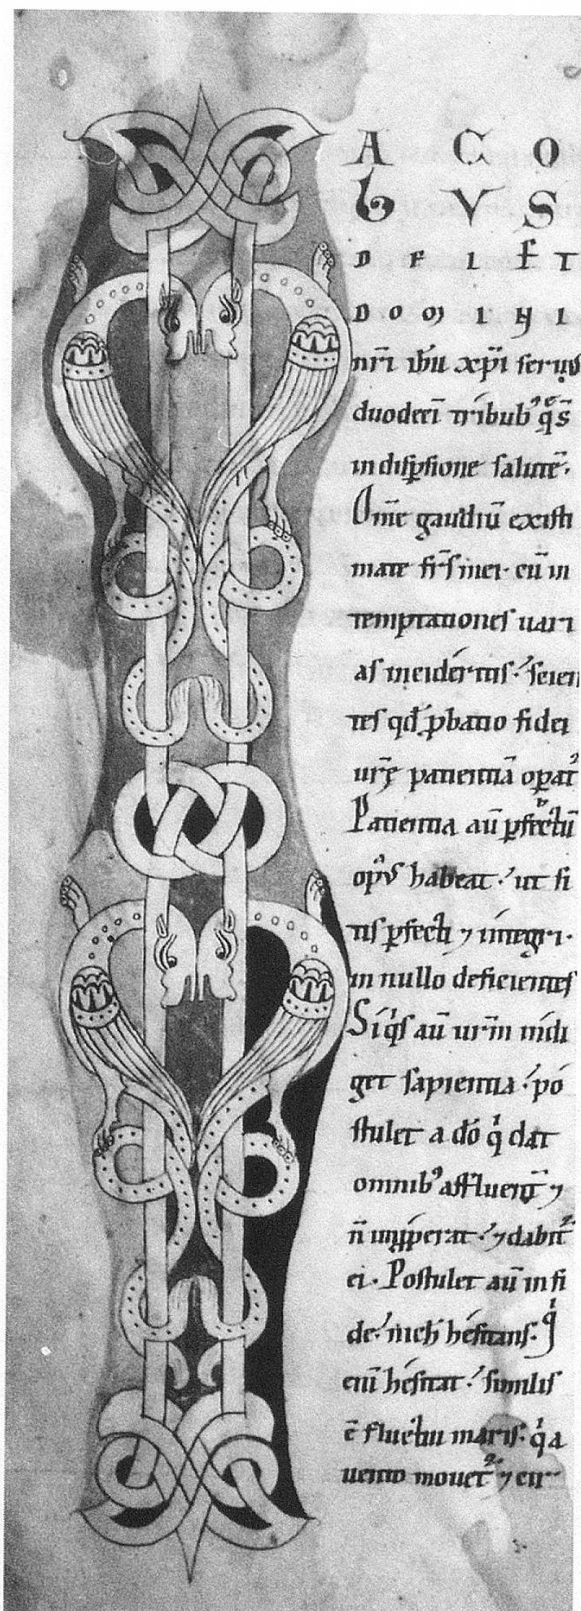 A C O
b V S
D E I E T
D O M I N I
nr̄i ih̄u xp̄i seruus
duodecī tribubꝰ q̄ s̄
in disꝑsione salutē.
Om̄e gaudiū existi
mate fr̄s mei. cū in
temptationes uari
as incideritis. scien
tes qd̄ ꝓbatio fidei
ur̄ę patientiā oꝑat᷑
Patientia aū ꝑfectū
opꝰ habeat. ut si
tis ꝑfecti ⁊ integri.
in nullo deficientes
Si qͥs aū ur̄m indi
get sapientia. po
stulet a dō qͥ dat
omnibꝰ affluent̄ ⁊
n̄ inꝓperat. ⁊ dabit᷑
ei. Postulet aū in fi
de. nich̄ hesitans. Qͥ
enī hesitat. similis
ē fluctui maris. qͥ a
uento mouet᷑ ⁊ cir